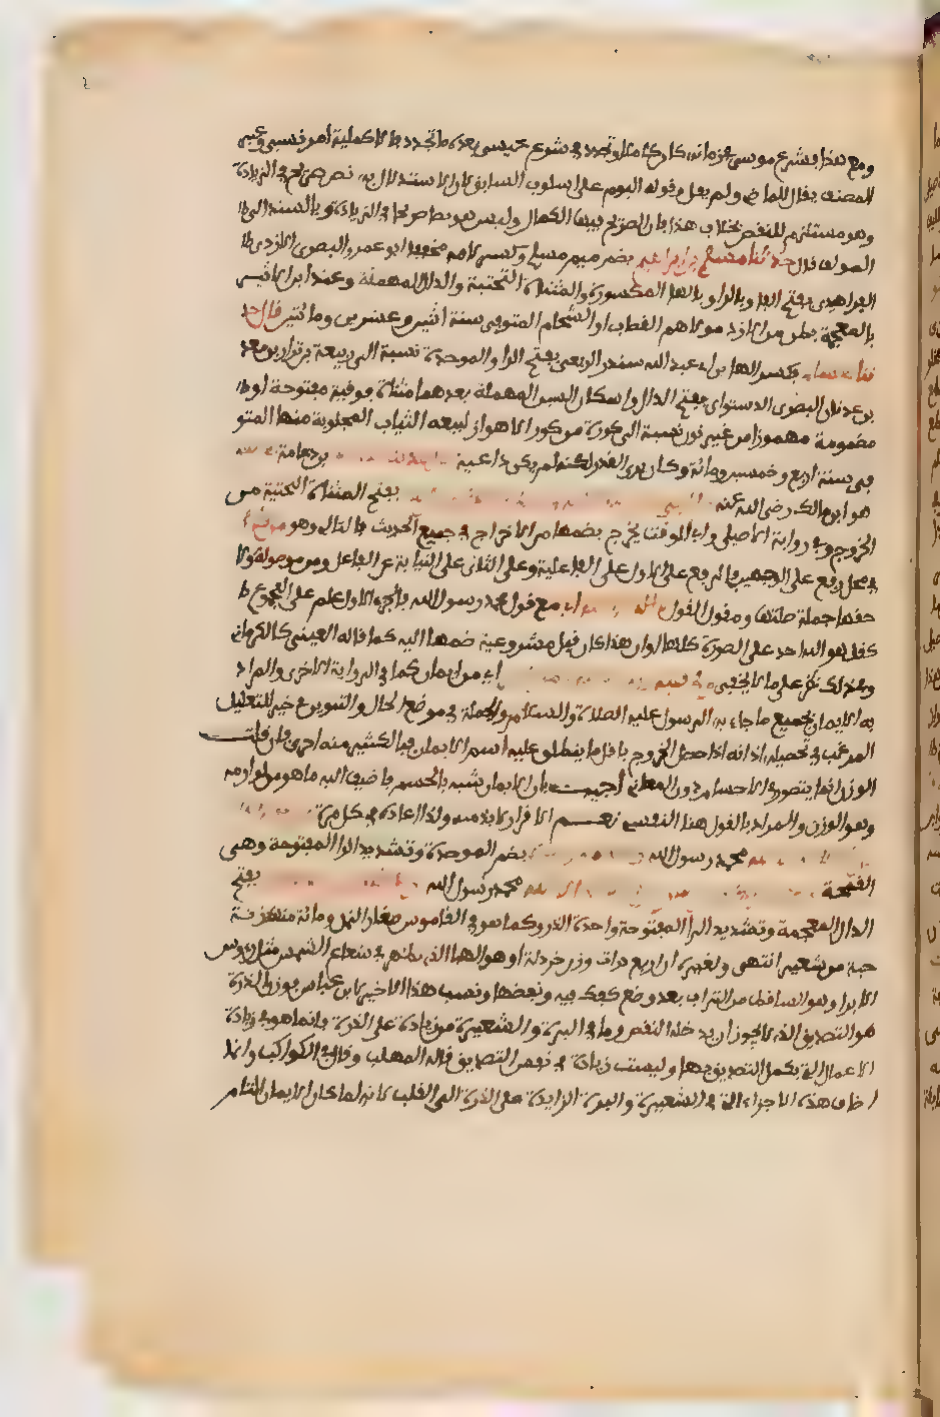 ومع هذا فشرع موسى في زمانه كان كاملا وتجدد في شرع عيسى بعده ما تجدد فالاكملية امر نسبي وعبر
المصنف بقال للماضي ولم يقل وقوله اليوم على اسلوب السابق لان الاستدلال به نص صريح في الزيادة
وهو مستلزم للنقص بخلاف هذا فان الصريح فيها الكمال وليس هو بصا صريحا في الزيادة وبالسند الى
المولف قال حدثنا مسلم بن ابراهيم بضم ميم مسلم وكسر لامه مخففة ابو عمرو البصري الازدي
الفراهيدي بفتح الفا وبالراو بالها المكسورة والمثناة التحتية والدال المهملة وعند ابن الاثير
بالمعجمة بطن من الازد مولاهم القصاب او الشحام المتوفى سنة اثنين وعشرين ومائتين قال حد
ثنا هشام بكسر الها بن ابي عبد الله سندر الربعي بفتح الرا والموحدة نسبة الى ربيعة بن نزار بن معد
بن عدنان البصري الدستوائي بفتح الدال واسكان السين المهملة بعدهما مثناة فوقية مفتوحة او
مضمومة مهموزا من غير نون نسبة الى كورة من كور الاهواز لبيعه الثياب المجلوبة منها المتو
في سنة اربع وخمسين ومائة وكان يرى القدر لكنه لم يكن داعية بن دعامة
هو ابن مالك رضي الله عنه بفتح المثناة التحتية من
الخروج وفي رواية الاصيلي وابي الوقت يخرج بضمها من الاخراج في جميع الحديث فالتالي وهو
في محل رفع على الوجهين فالرفع على الاول على الفاعلية وعلى الثاني على النيابة عن الفاعل ومن موصولة ولا
حقها جملة صلتها ومقول القول اي مع قول محمد رسول الله فالجزء الاول علم على المجموع
كقل هو الله احد على السورة كلها او ان هذا كان قبل مشروعية ضمها اليه كما قاله العيني كالكرماني
اي من ايمان كما في الرواية الاخرى والمراد
به الايمان بجميع ما جاء به الرسول عليه الصلاة والسلام والجملة في موضع الحال والتنوين في خير للتقليل
المرغب في تحصيله اذ انه اذا حصل الخروج باقل ما ينطلق عليه اسم الايمان فبالكثير منه احرى فان قلت
الوزن انما يتصور في الاجسام دون المعاني اجيب بان الايمان شبه بالجسم فاضيف اليه ما هو من لوازمه
وهو الوزن والمراد بالقول هنا النفسي نعم الاقرار لا بد منه ولذا اعاده في كل مرة
محمد رسول الله بضم الموحدة وتشديد الرا المفتوحة وهي
القمحة محمد رسول الله بفتح
الذال المعجمة وتشديد الراء المفتوحة واحدة الذر وكما هو في القاموس صغار النمل ومائة منها زنة
حبة من شعير انتهى ولغيره ان اربع ذرات وزن خردلة او هو الهبا الذي يظهر في شعاع الشمس مثل رووس
الابر او هو الساقط من التراب بعد وضع كفك فيه ونفضها ونسب هذا الاخير لابن عباس فوزن الذرة
هو التصديق الذي لا يجوز ان يدخله النقص وما في البرة والشعيرة من زيادة على الذرة فانما هو في زيادة
الاعمال التي يكمل التصديق بها وليست زيادة في نفس التصديق قاله المهلب وقال في الكواكب وانما
اضاف هذه الاجزاء التي في الشعيرة والبرة الزايدة على الذرة الى القلب لانه لما كان الايمان التام